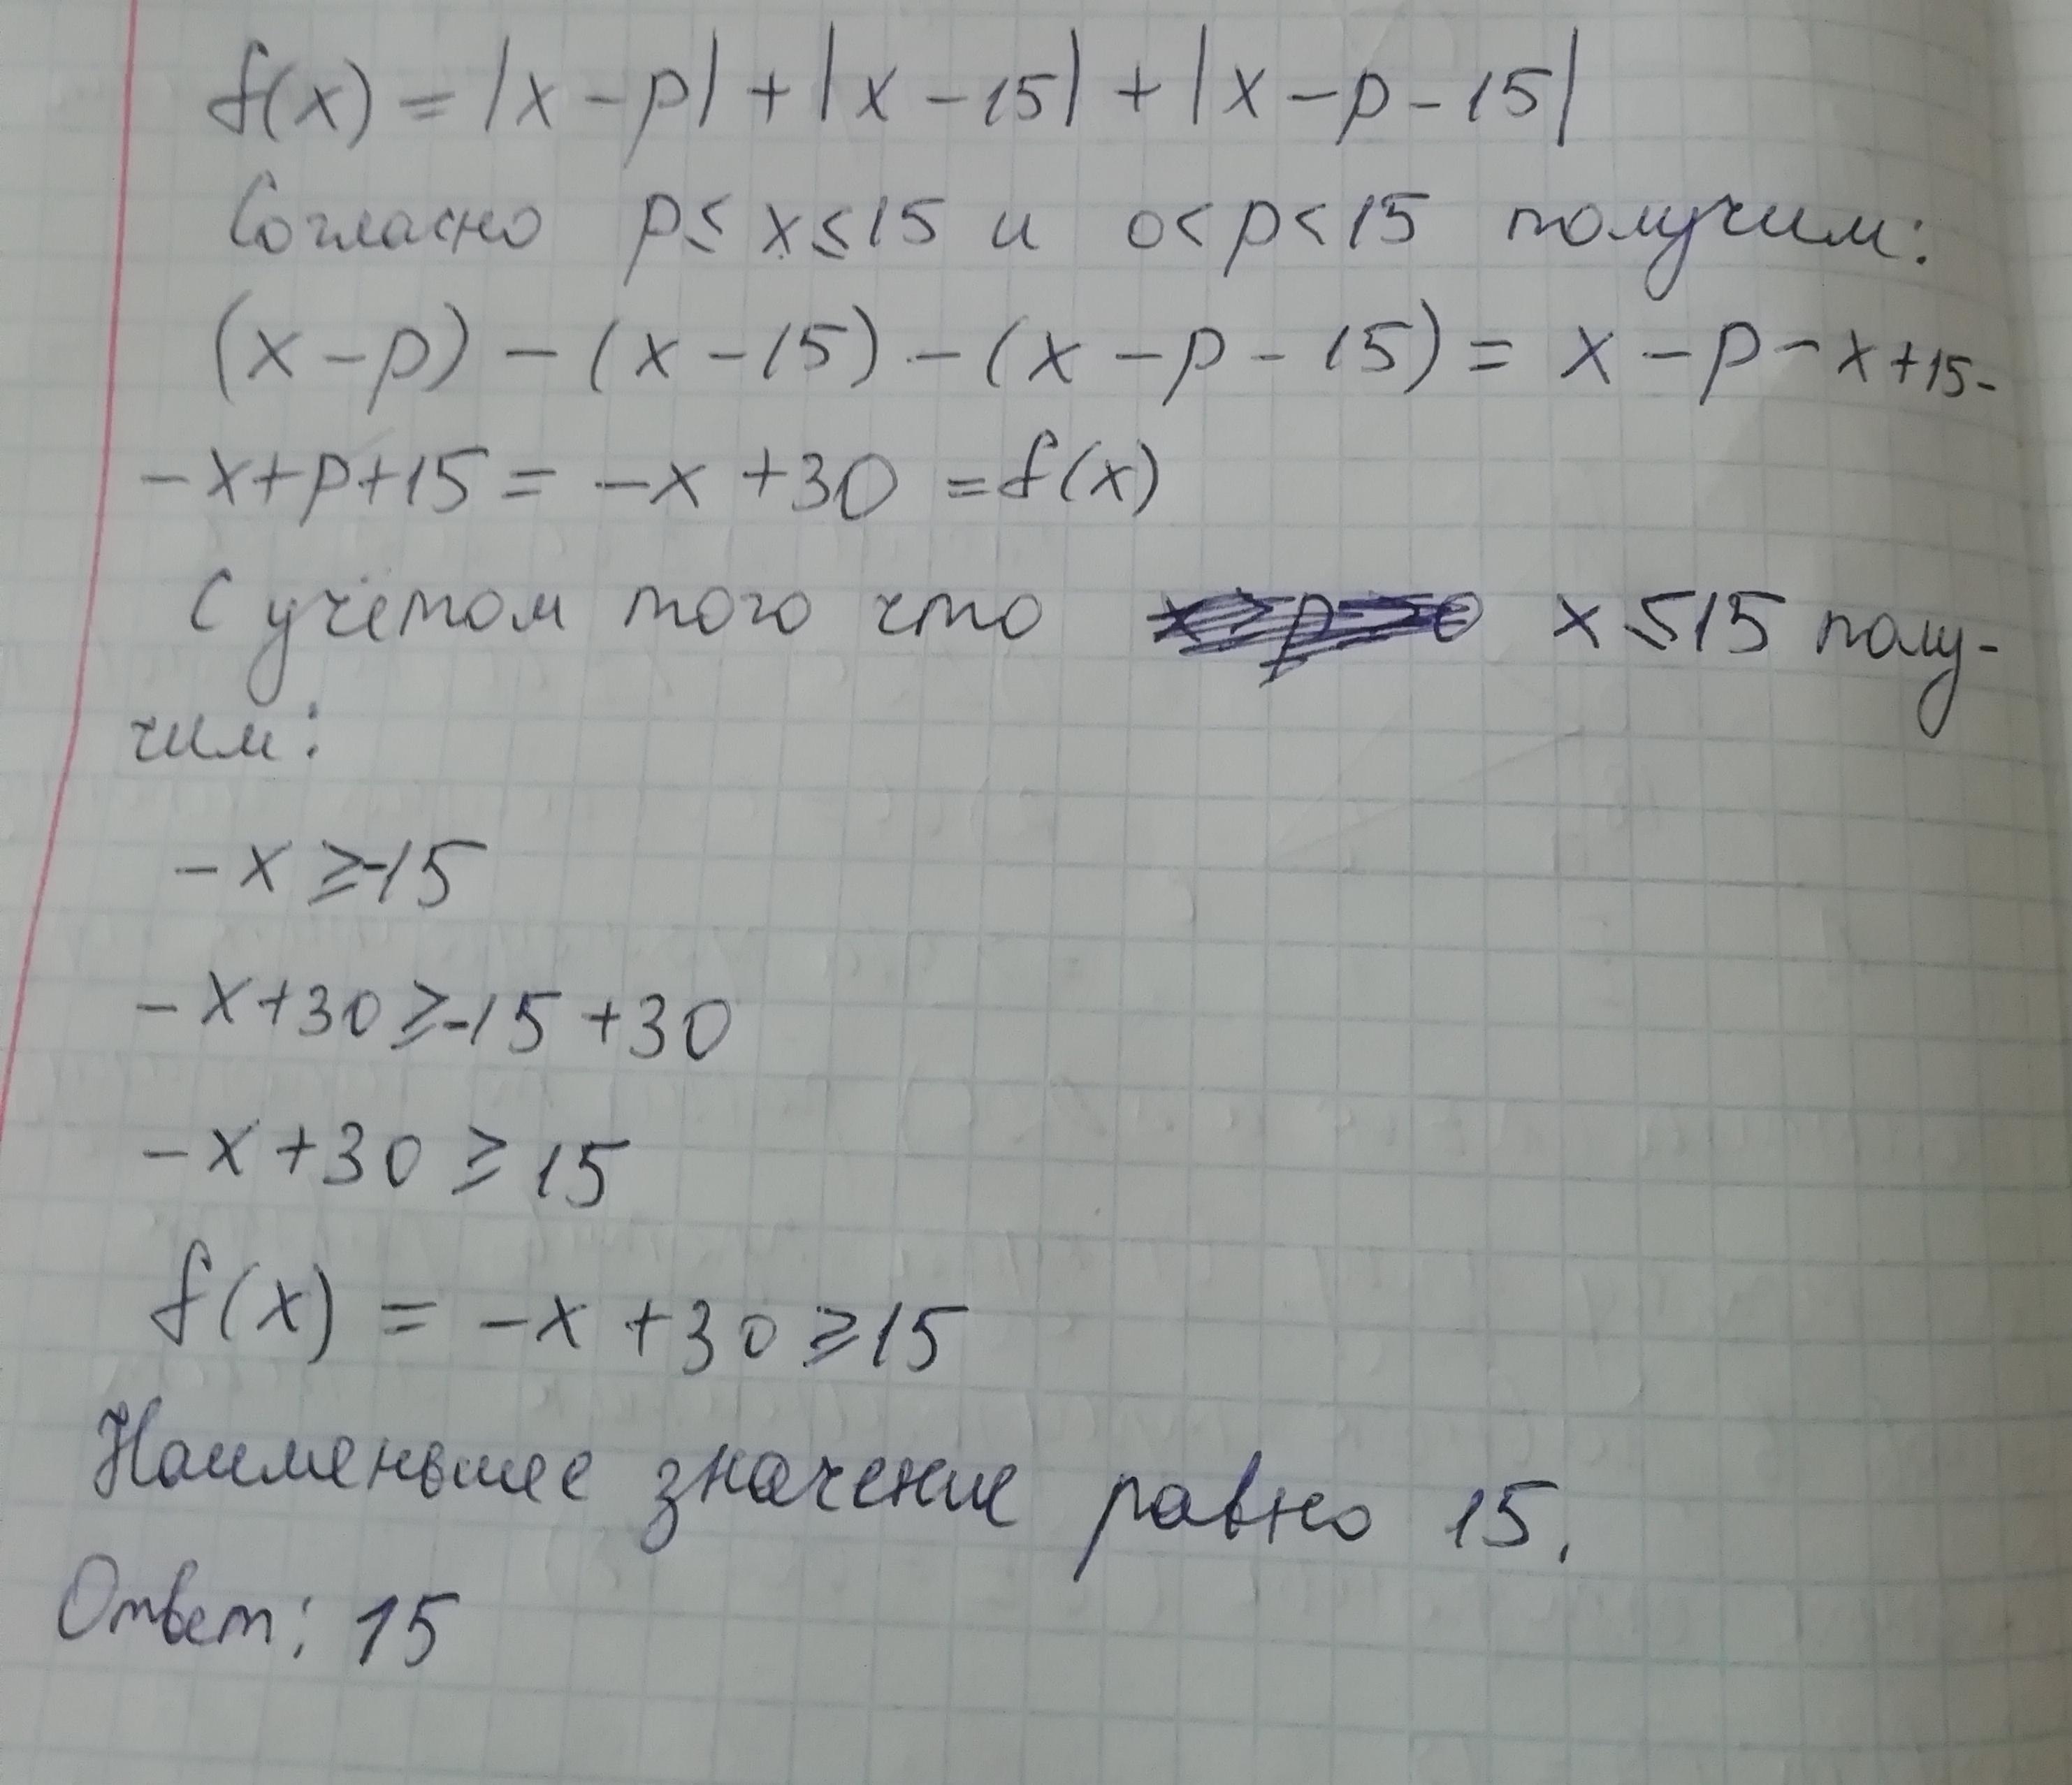 f(x) = |x - p| + |x - 15| + |x - p - 15|
Согласно p ≤ x ≤ 15 и 0 < p < 15 получим:
(x - p) - (x - 15) - (x - p - 15) = x - p - x + 15 -
- x + p + 15 = - x + 30 = f(x)
С учётом того что x ≤ 15 полу-
чим:
- x ≥ -15
- x + 30 ≥ -15 + 30
- x + 30 ≥ 15
f(x) = - x + 30 ≥ 15
Наименьшее значение равно 15.
Ответ: 15